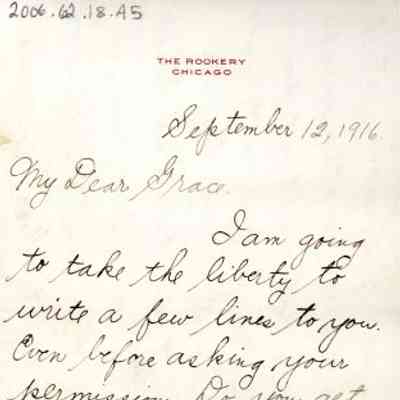 2006.62.18.45
THE ROOKERY
CHICAGO
September 12, 1916.
My Dear Grace.
I am going
to take the liberty to
write a few lines to you.
Even before asking your
permission. Do you get